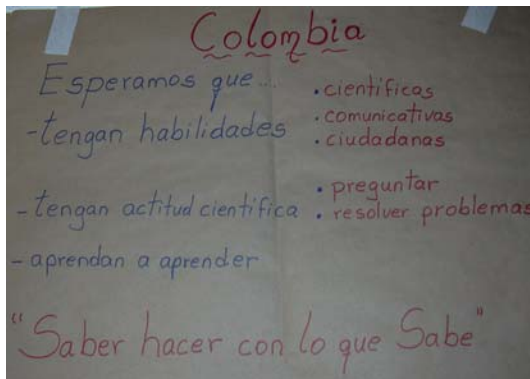 Colombia
Esperamos que...
-tengan habilidades
• científicas
• comunicativas
• ciudadanas
- tengan actitud científica
• preguntar
• resolver problemas
- aprendan a aprender
"Saber hacer con lo que Sabe"